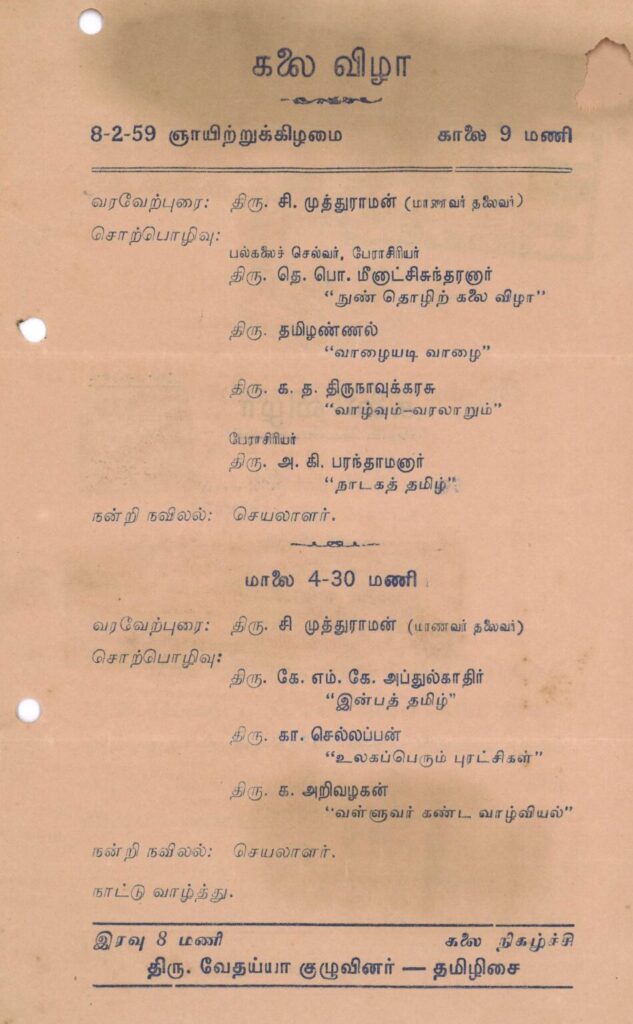 கலை விழா
8-2-59 ஞாயிற்றுக்கிழமை காலை 9 மணி
வரவேற்புரை: திரு. சி. முத்துராமன் (மாணவர் தலைவர்)
சொற்பொழிவு:
பல்கலைச் செல்வர், பேராசிரியர்
திரு. தெ. பொ. மீனாட்சிசுந்தரனார்
“நுண் தொழிற் கலை விழா”
திரு. தமிழண்ணல்
“வாழையடி வாழை”
திரு. க. த. திருநாவுக்கரசு
“வாழ்வும்—வரலாறும்”
பேராசிரியர்
திரு. அ. கி. பரந்தாமனார்
“நாடகத் தமிழ்”
நன்றி நவிலல்: செயலாளர்.
மாலை 4-30 மணி
வரவேற்புரை: திரு. சி முத்துராமன் (மாணவர் தலைவர்)
சொற்பொழிவு:
திரு. கே. எம். கே. அப்துல்காதிர்
“இன்பத் தமிழ்”
திரு. கா. செல்லப்பன்
“உலகப்பெரும் புரட்சிகள்”
திரு. க. அறிவழகன்
“வள்ளுவர் கண்ட வாழ்வியல்”
நன்றி நவிலல்: செயலாளர்.
நாட்டு வாழ்த்து.
இரவு 8 மணி கலை நிகழ்ச்சி
திரு. வேதய்யா குழுவினர் — தமிழிசை